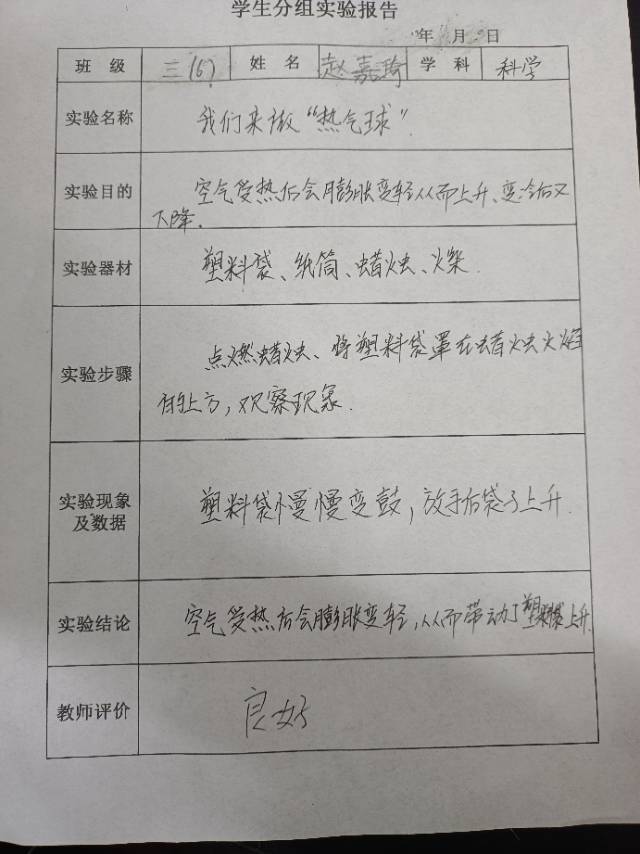 学生分组实验报告
年 月 日
班级 三(6) 姓名 赵嘉琦 学科 科学
实验名称 我们来做“热气球”.
实验目的 空气受热后会膨胀变轻从而上升、变冷后又
下降.
实验器材 塑料袋、纸筒、蜡烛、火柴.
实验步骤 点燃蜡烛、将塑料袋罩在蜡烛火焰
的上方,观察现象.
实验现象及数据 塑料袋慢慢变鼓,放手后袋子上升.
实验结论 空气受热后会膨胀变轻,从而带动了塑料袋上升.
教师评价 良好